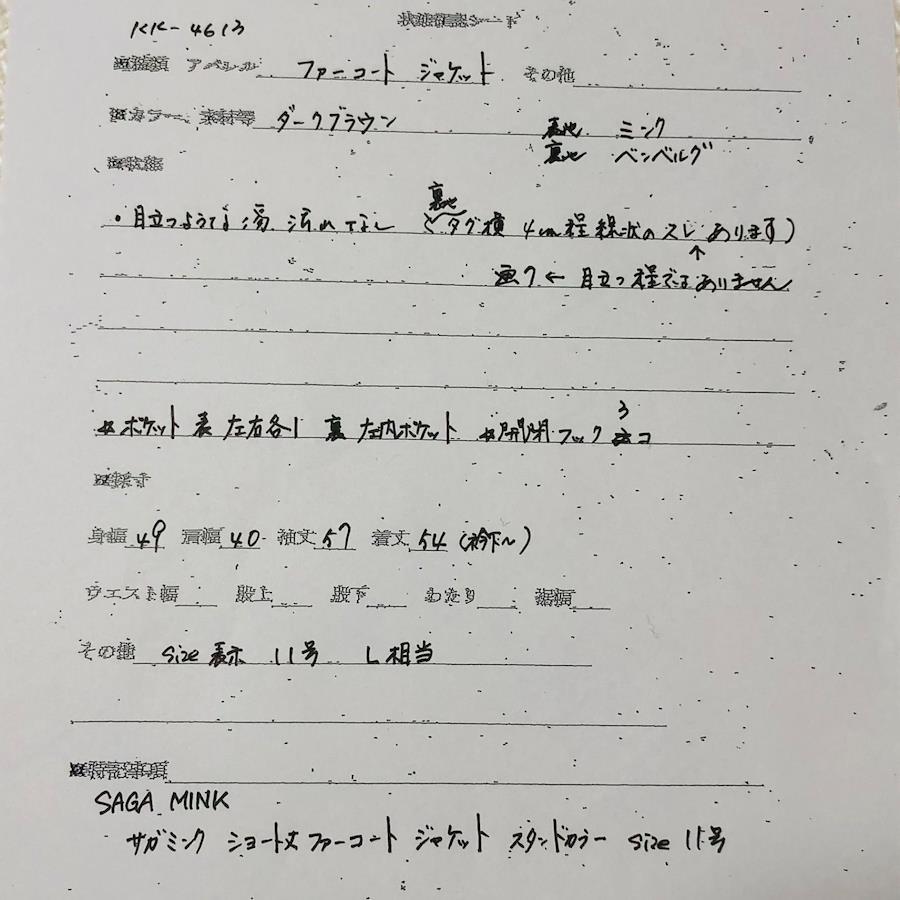 状態確認シート
KK-4613
■種類 アパレル ファーコート ジャケット その他
■カラー、素材等 ダークブラウン 表地 ミンク
裏地 ベンベルグ
■状態
・目立つような傷 汚れ なし (裏地 タグ横 4cm程 線状のスレ あります)
画7 ← 目立つ程ではありません ↑
※ポケット 表 左右各1 裏 左内ポケット ※開閉 フック 3コ
■採寸
身幅 49 肩幅 40 袖丈 57 着丈 54 (衿下〜)
ウエスト幅 股上 股下 わたり 裾幅
その他 size 表示 11号 L相当
■特記事項
SAGA MINK
サガミンク ショート丈 ファーコート ジャケット スタンドカラー size 11号